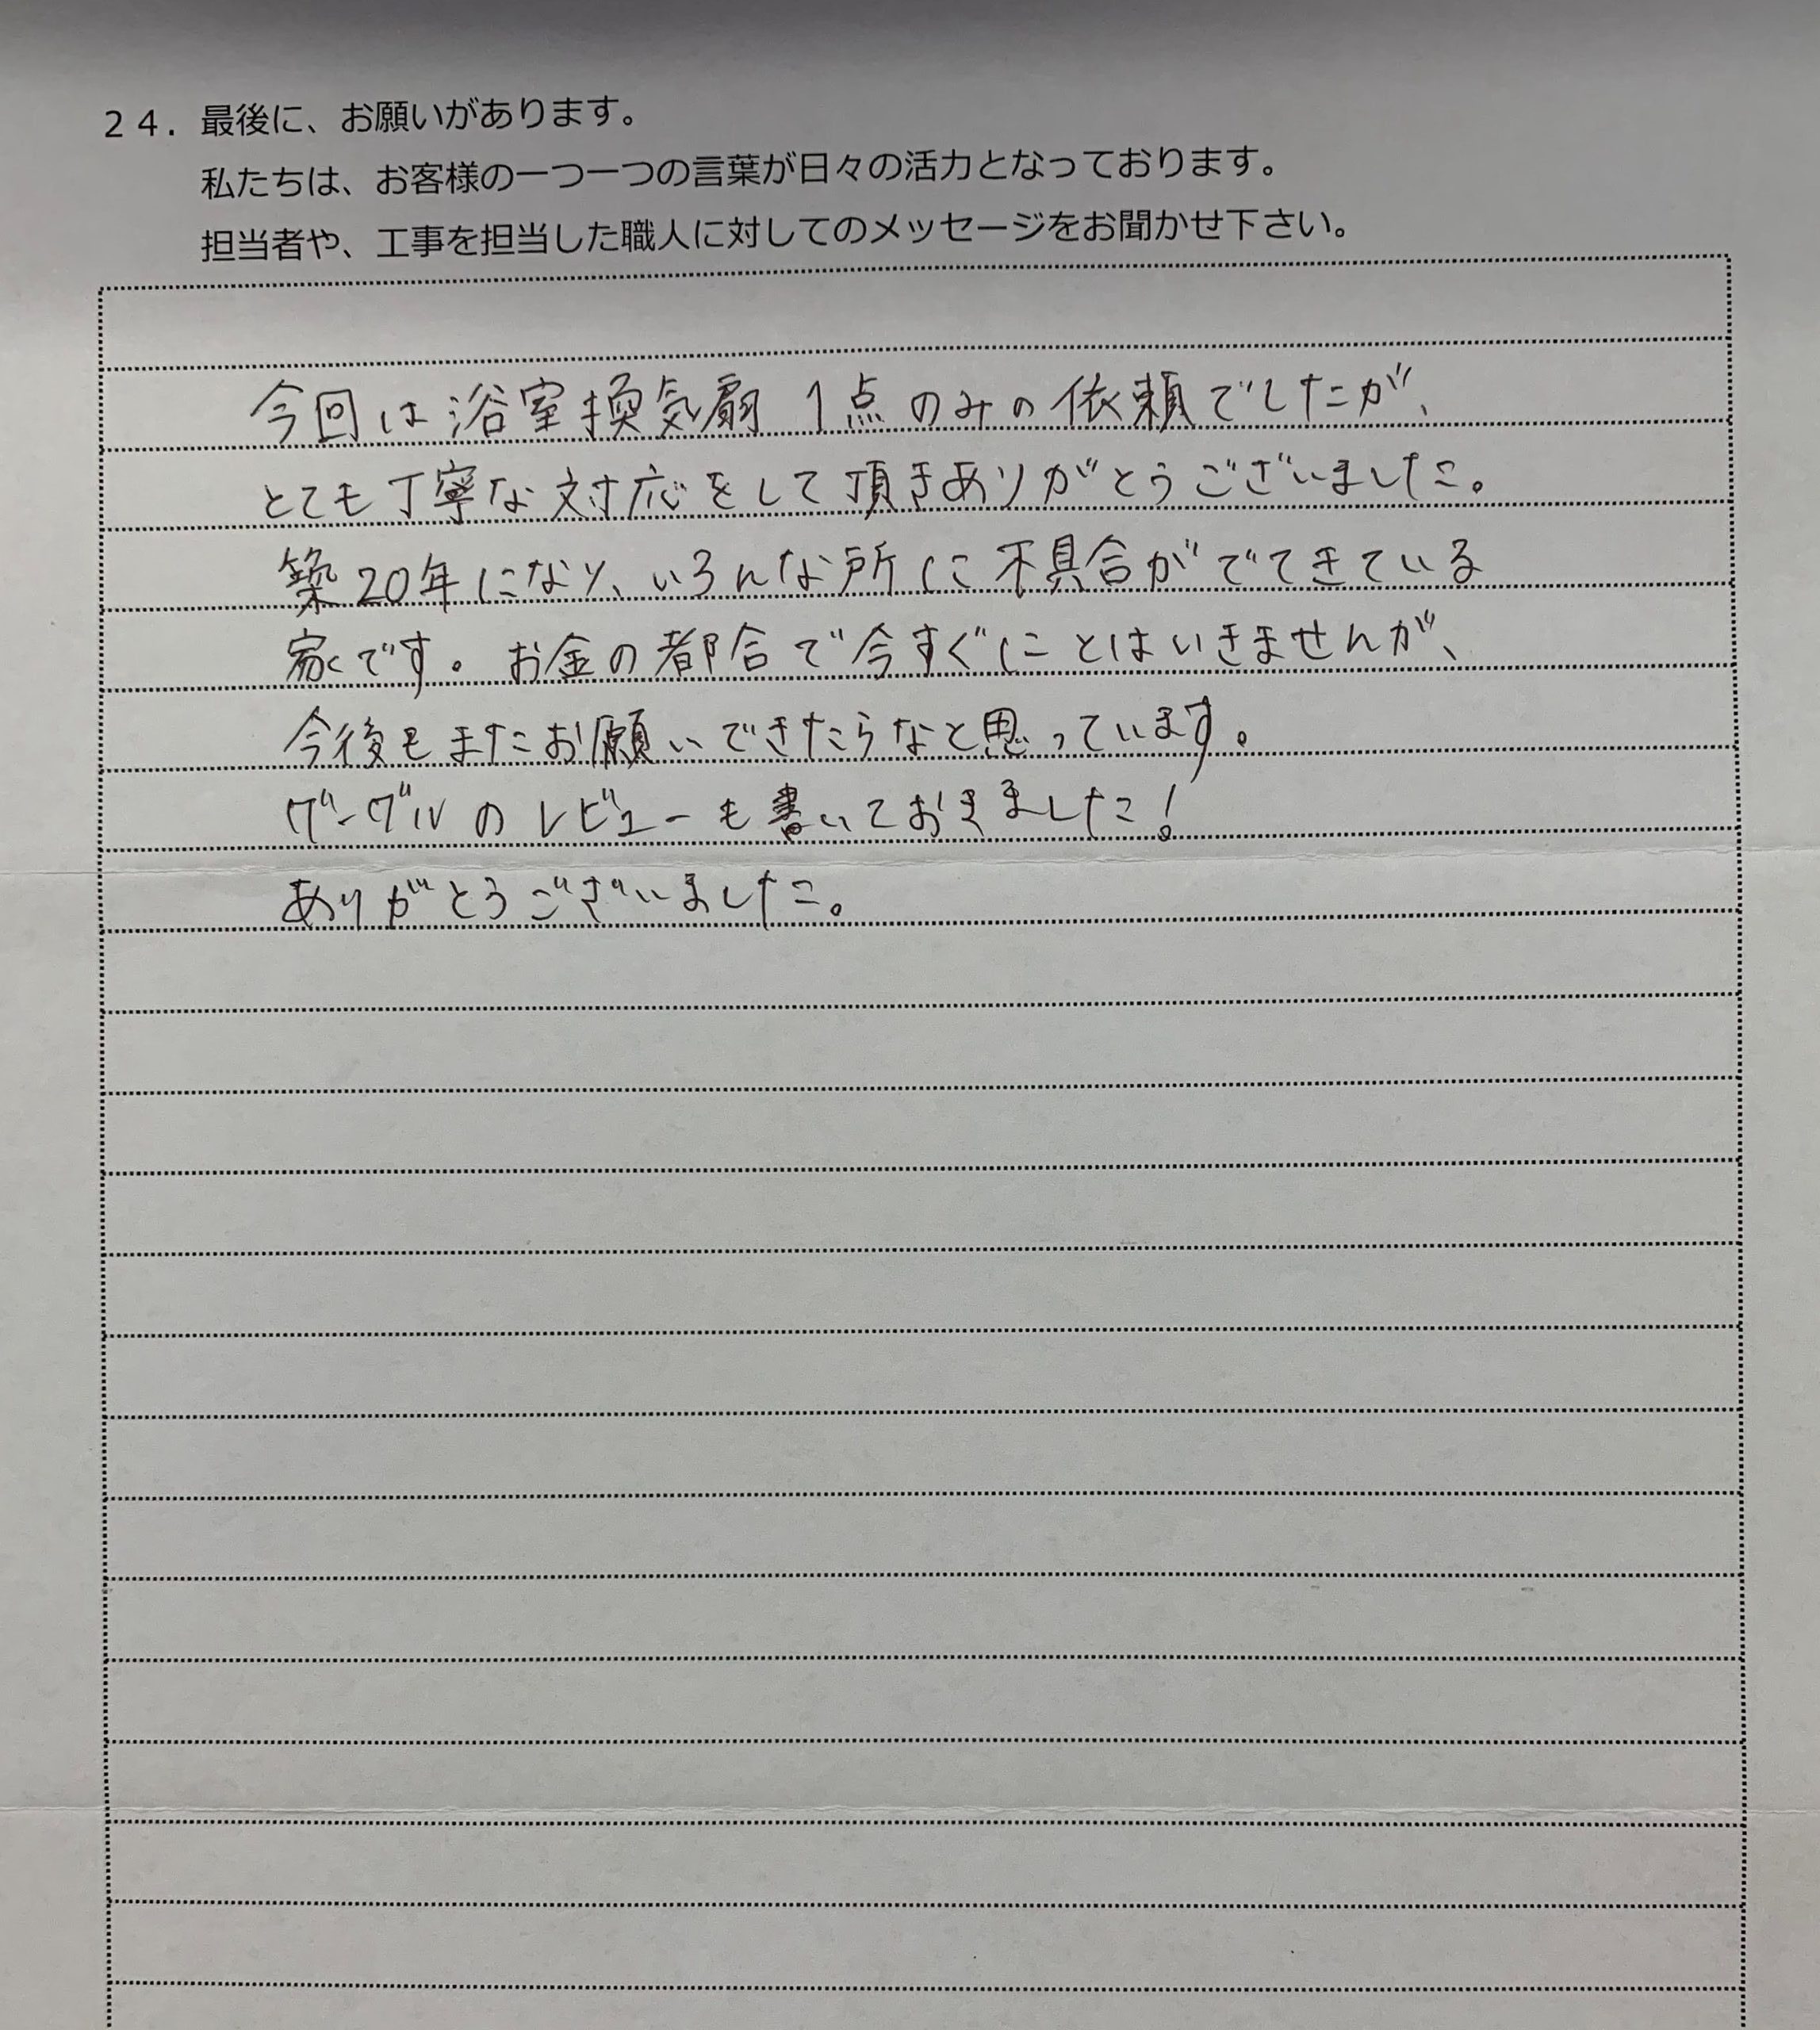 ２４．最後に、お願いがあります。
私たちは、お客様の一つ一つの言葉が日々の活力となっております。
担当者や、工事を担当した職人に対してのメッセージをお聞かせ下さい。
今回は浴室換気扇1点のみの依頼でしたが、
とても丁寧な対応をして頂きありがとうございました。
築20年になり、いろんな所に不具合がでてきている
家です。お金の都合で今すぐにとはいきませんが、
今後もまたお願いできたらなと思っています。
グーグルのレビューも書いておきました!
ありがとうございました。